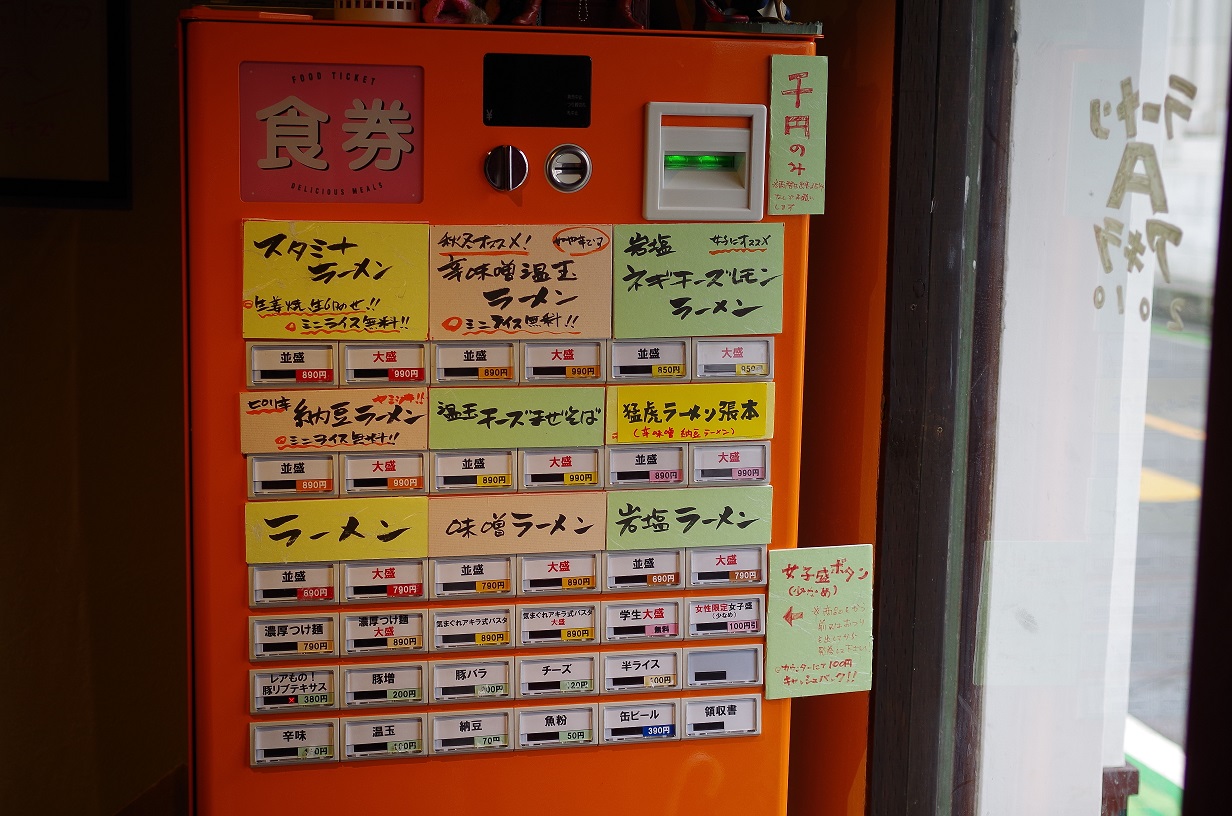 FOOD TICKET
食券
DELICIOUS MEALS
¥
千円のみ
スタミナ
ラーメン
生姜焼
ミニライス無料!!
秋冬オススメ!
やや辛です
辛味噌温玉
ラーメン
ミニライス無料!!
岩塩
女子にオススメ
ネギチーズレモン
ラーメン
並盛 890円
大盛 990円
並盛 890円
大盛 990円
並盛 850円
大盛 950円
ピリ辛
納豆ラーメン
ミニライス無料!!
温玉チーズまぜそば
猛虎ラーメン張本
(辛味噌 納豆ラーメン)
並盛 890円
大盛 990円
並盛 890円
大盛 990円
並盛 890円
大盛 990円
ラーメン
味噌ラーメン
岩塩ラーメン
並盛 690円
大盛 790円
並盛 790円
大盛 890円
並盛 690円
大盛 790円
濃厚つけ麺 790円
濃厚つけ麺
大盛 890円
気まぐれアキラ式パスタ 890円
気まぐれアキラ式パスタ
大盛 890円
学生大盛 無料
女性限定女子盛
(少なめ)
100円引
レアもの!
豚リブテキサス
380円
豚増 200円
豚バラ
チーズ
半ライス
辛味
温玉
納豆 70円
魚粉 50円
缶ビール 390円
領収書
女子盛ボタン
(少なめ)
カウンターにて100円
キャッシュバック!!
ラーメン
A
アキラ
2010